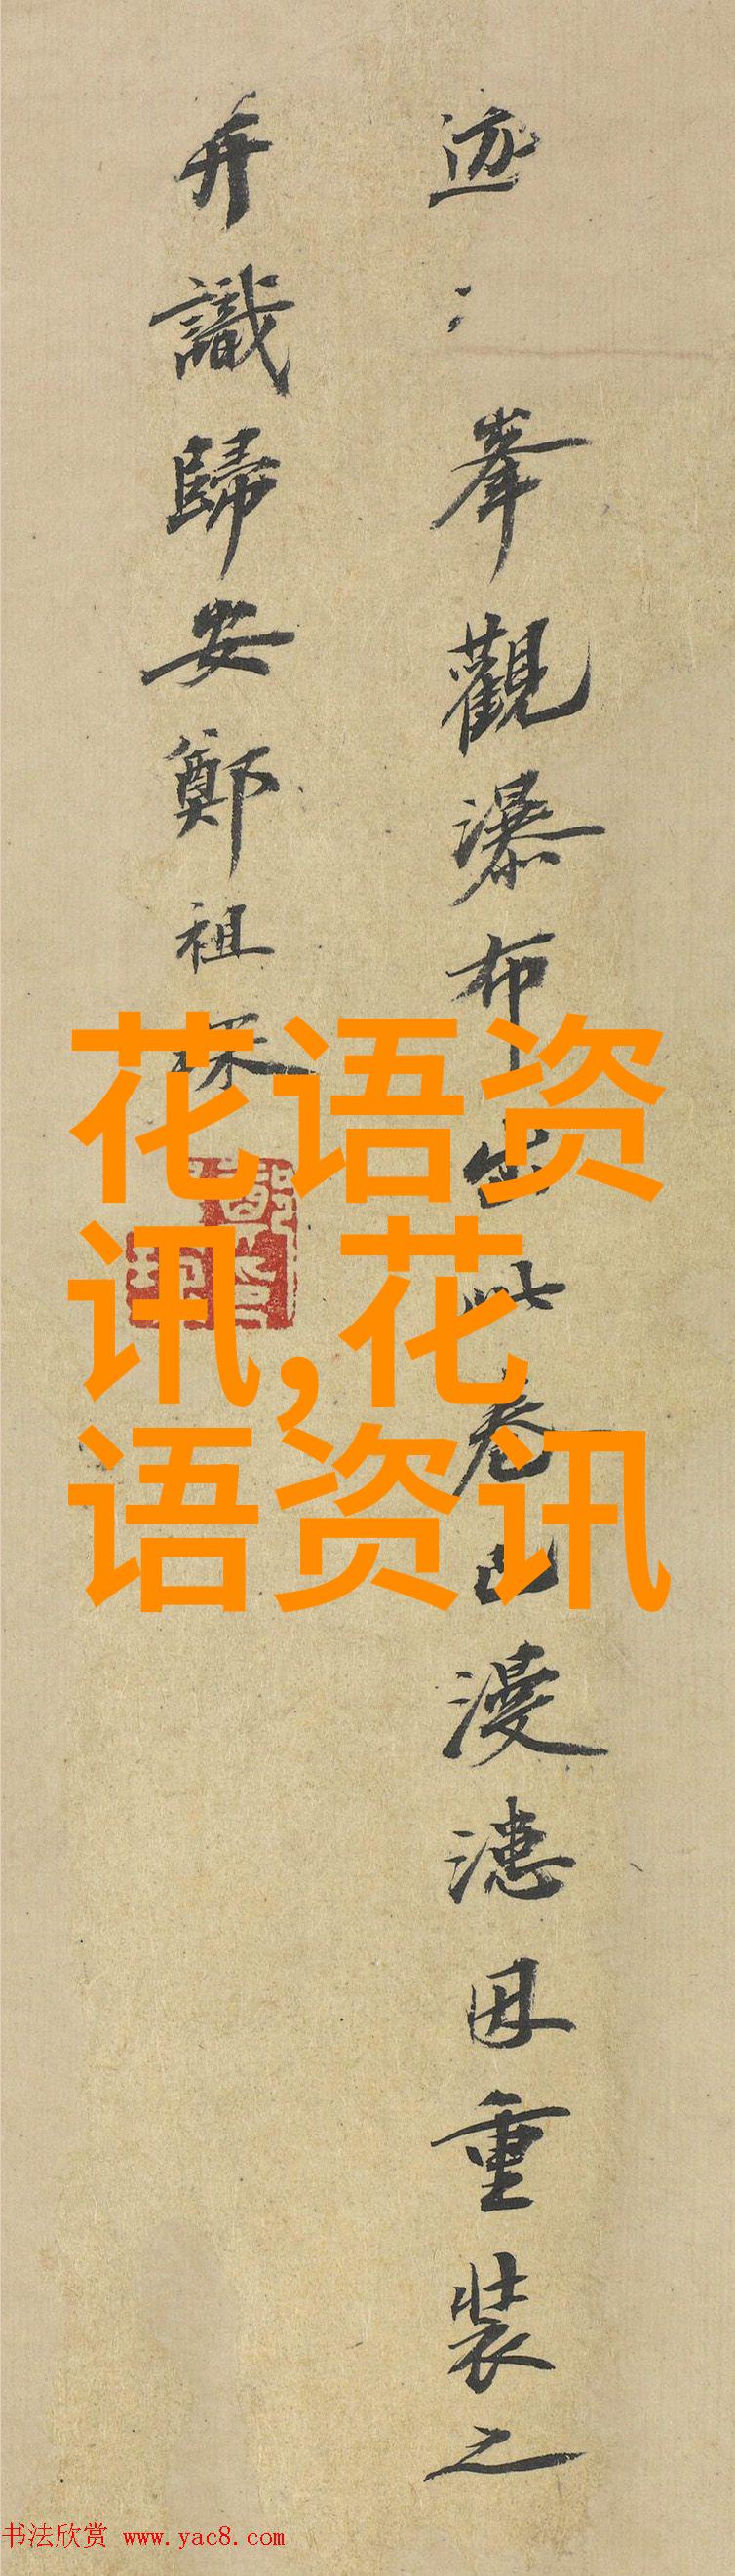 迹〻峯觀瀑布此卷已漫漶因重裝之
并識歸安鄭祖琛
花语资
讯,花
语资讯
书法欣赏 www.yac8.com